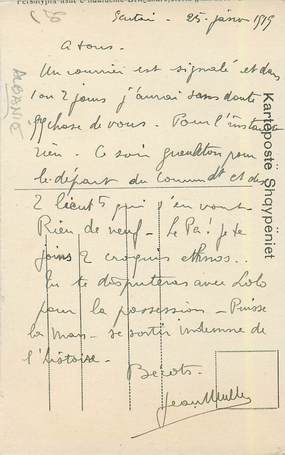 Scutari - 25 - janvier 1919
A tous -
Un courrier est signalé et dans
1 ou 2 jours j'aurai sans doute
qqchose de vous - Pour l'instant
rien. Ce soir gueuleton pour
le départ du Commdt et des
2 lieuts qui s'en vont
Rien de neuf - Le Pa! je te
joins 2 croquis ethnos..
Tu te disputeras avec Lolo
pour la possession - Puisse
la Mam - se sortir indemne de
l'histoire -
Bécots -
Jean
ALBANIE
Kartëpostë Shqypëniet